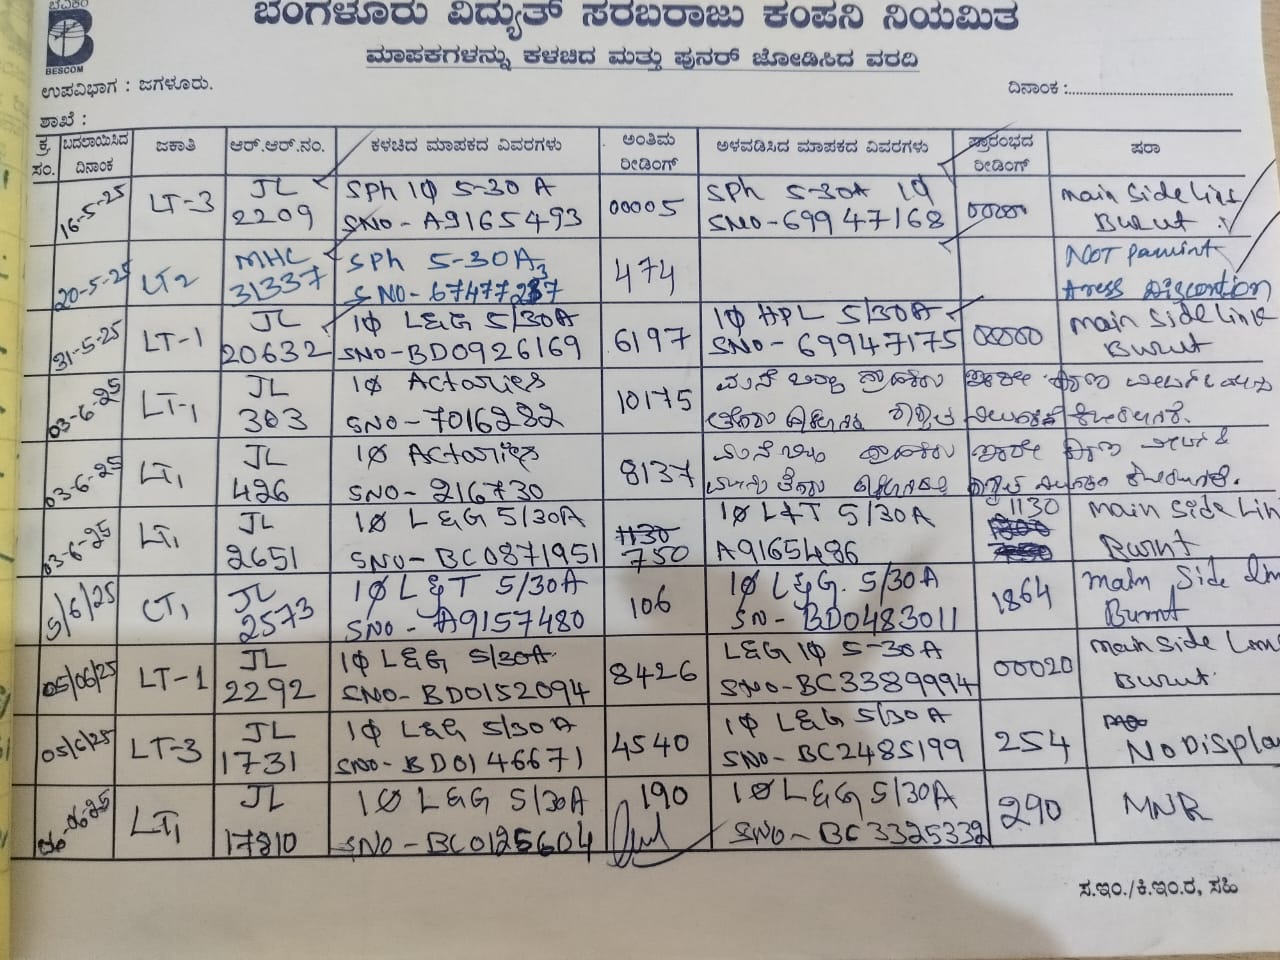 ಬೆವಿಕಂ
BESCOM
ಬೆಂಗಳೂರು ವಿದ್ಯುತ್ ಸರಬರಾಜು ಕಂಪನಿ ನಿಯಮಿತ
ಮಾಪಕಗಳನ್ನು ಕಳಚಿದ ಮತ್ತು ಪುನರ್ ಜೋಡಿಸಿದ ವರದಿ
ಉಪವಿಭಾಗ : ಜಗಳೂರು.
ದಿನಾಂಕ :
ಶಾಖೆ :
ಕ್ರ. ಸಂ. ಬದಲಾಯಿಸಿದ ದಿನಾಂಕ ಜಕಾತಿ ಆರ್.ಆರ್.ನಂ. ಕಳಚಿದ ಮಾಪಕದ ವಿವರಗಳು ಅಂತಿಮ ರೀಡಿಂಗ್ ಅಳವಡಿಸಿದ ಮಾಪಕದ ವಿವರಗಳು ಪ್ರಾರಂಭದ ರೀಡಿಂಗ್ ಷರಾ
16-5-25 LT-3 JL 2209 SPh 1Φ 5-30 A SNO- A9165493 00005 SPh 5-30A 1Φ SNO-69947168 main Side Burut
20-5-25 LT2 MHC 31337 SPh 5-30A 474 NOT
31-5-25 LT-1 JL 20632 1Φ L&G 5/30A SNO-BD0926169 6197 1Φ HPL 5/30A SNO-69947175 00000 main Side Link Burut
03-6-25 LT-1 JL 303 1Φ Actaries SNO-7016282 10175
03-6-25 LT1 JL 426 1Φ Actaries SNO-216730 8137
03-6-25 LT1 JL 2651 1Φ L&G 5/30A SNO-BC0871951 1130 750 1Φ L&T 5/30A A9165486 1130 main Side Lin Burnt
5/6/25 LT1 JL 2573 1Φ L&T 5/30A SNO-A9157480 106 1Φ L&G. 5/30A SN-BD0483011 1864 main Side Burnt
05/06/25 LT-1 JL 2292 1Φ L&G 5/30A SNO-BD0152094 8426 L&G 1Φ 5-30A SNO-BC3389994 00020 main Side Burut
05/6/25 LT-3 JL 1731 1Φ L&G 5/30A SNO-BD0146671 4540 1Φ L&G 5/30A SNO-BC2485199 254 NO Display
06-06-25 LT1 JL 17810 1Φ L&G 5/30A SNO-BC0125604 190 1Φ L&G 5/30A SNO-BC3325332 290 MNR
ಸ.ಇಂ./ಕಿ.ಇಂ.ರ, ಸಹಿ